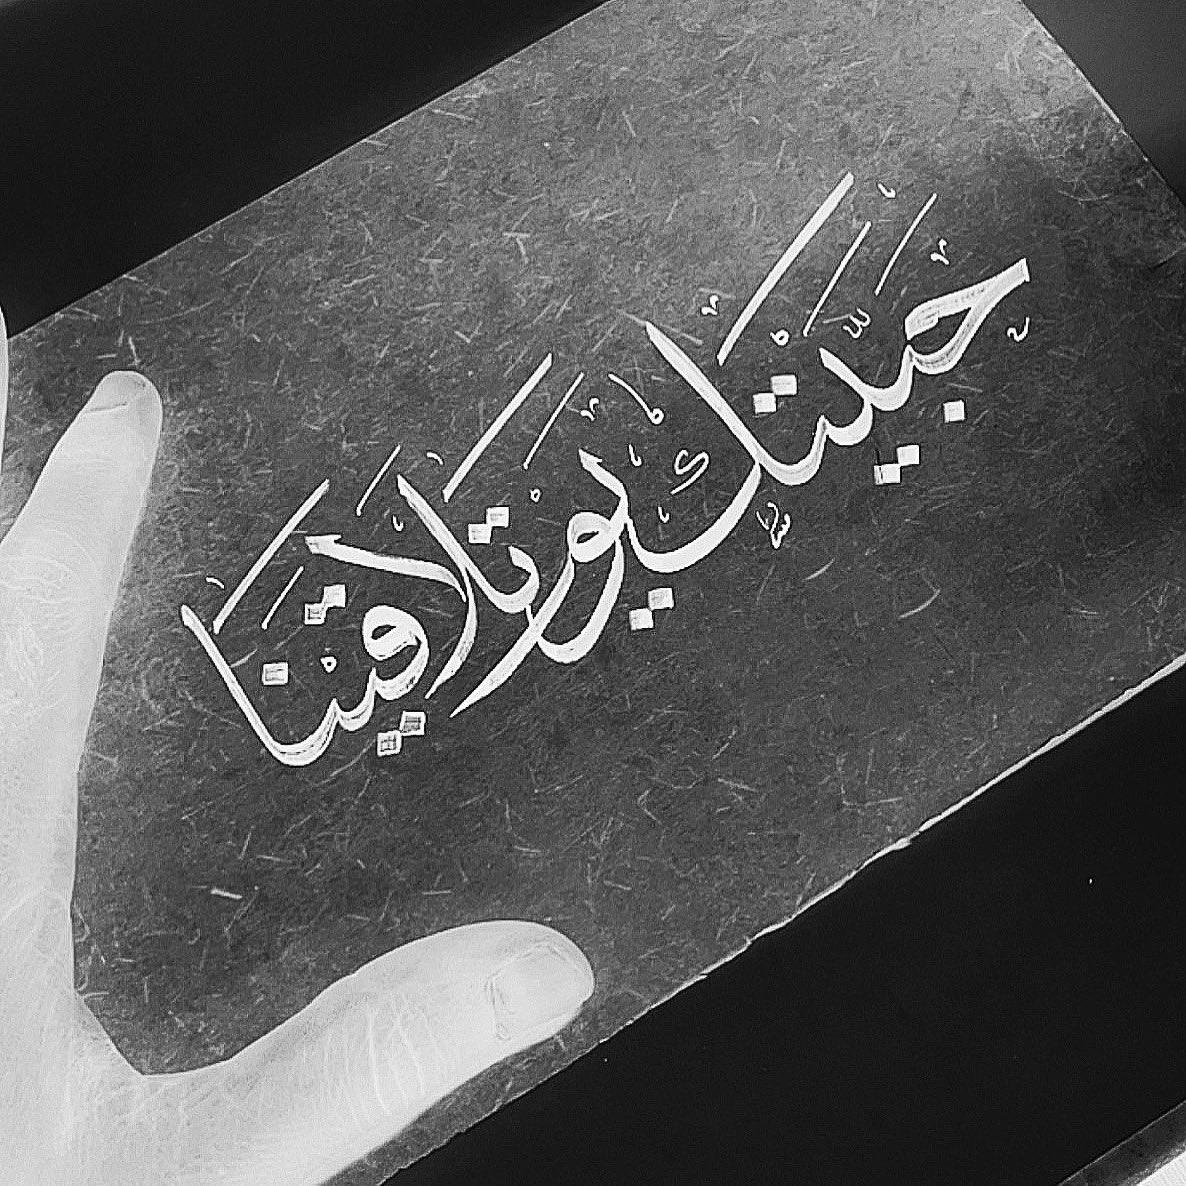 حبّيتك يوم تلاقينا